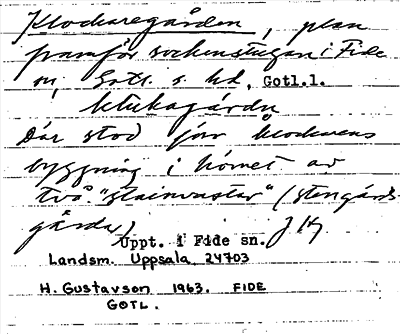 Klockaregården, plan
framför sockenstugan i Fide
sn, Gotl. s. hd, Gotl.l.
klukagardn
Där stod förr klockarens
byggning i hörnet av
två "stainvastar" (stengärds-
gårdar) J Kg
Uppt. i Fide sn.
Landsm. Uppsala 24703
H. Gustavson 1963. FIDE
GOTL.